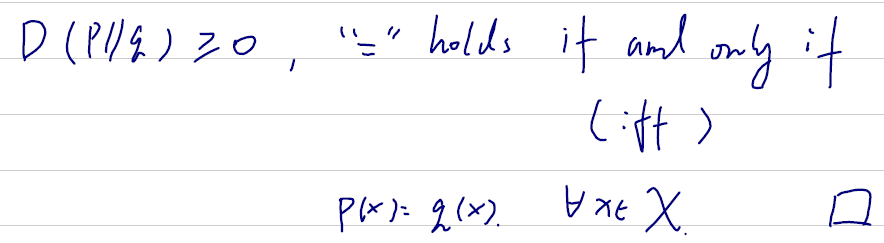 D(P||q) ≥ 0, "=" holds if and only if
(iff)
P(x) = q(x). ∀ x ∈ X. □